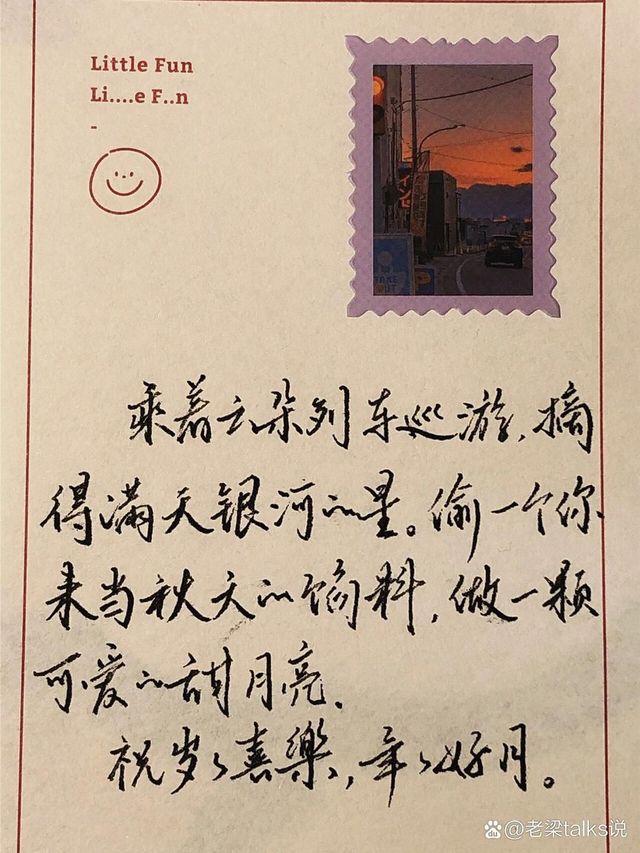 Little Fun
Li....e F..n
-
TAKE
OUT
乘着云朵列车巡游,摘
得满天银河的星。偷一个你
来当秋天的馅料,做一颗
可爱的甜月亮.
祝岁々喜樂,年々好月。
@老梁talks说